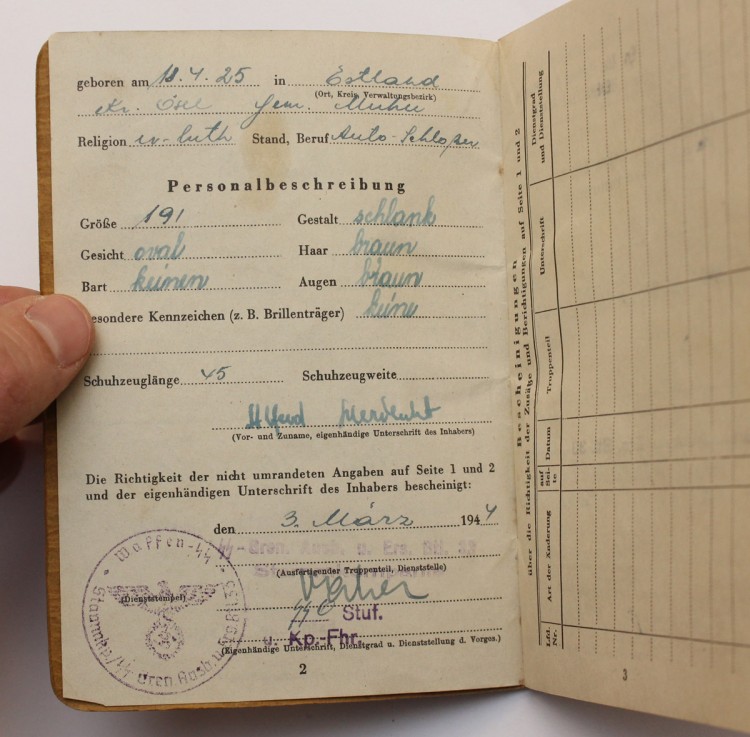 geboren am 11.4.25 in Estland
(Ort, Kreis, Verwaltungsbezirk)
Kr. Ösel Gem. Muhu
Religion ev-luth Stand, Beruf Auto-Schloßer
Personalbeschreibung
Größe 191 Gestalt schlank
Gesicht oval Haar braun
Bart keinen Augen braun
esondere Kennzeichen (z. B. Brillenträger) keine
Schuhzeuglänge 45 Schuhzeugweite
(Vor- und Zuname, eigenhändige Unterschrift des Inhabers)
Die Richtigkeit der nicht umrandeten Angaben auf Seite 1 und 2
und der eigenhändigen Unterschrift des Inhabers bescheinigt:
den 3. März 1944
SS-Gren. Ausb. u. Ers. Btl. 33
(Ausfertigender Truppenteil, Dienststelle)
(Dienststempel)
Waffen-SS
Stammkp./SS-Gren Ausb
Stuf.
u. Kp.-Fhr.
(Eigenhändige Unterschrift, Dienstgrad u. Dienststellung d. Vorges.)
2
Bescheinigungen
über die Richtigkeit der Zusätze und Berichtigungen auf Seite 1 und 2
Lfd. Nr.
Art der Änderung
auf Sei- te
Datum
Truppenteil
Unterschrift
Dienstgrad
und Dienststellung
3